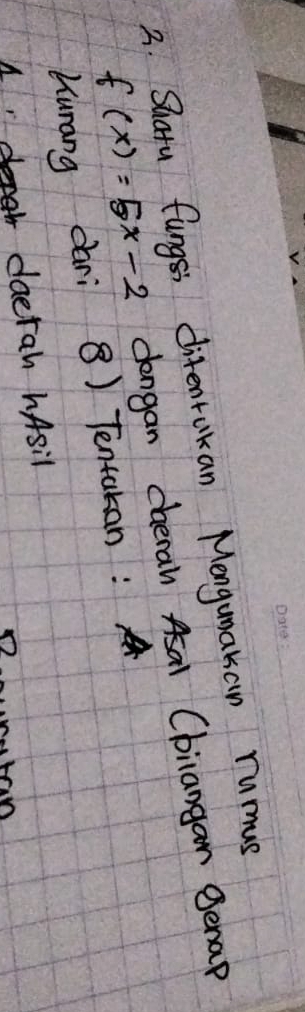 Date:
2. Suatu fungsi ditentukan Mengunakan rumus
f (x) = 5x - 2 dengan daerah Asal (bilangan genap
kurang dari 8) Tentukan :
A. daerah hAsil